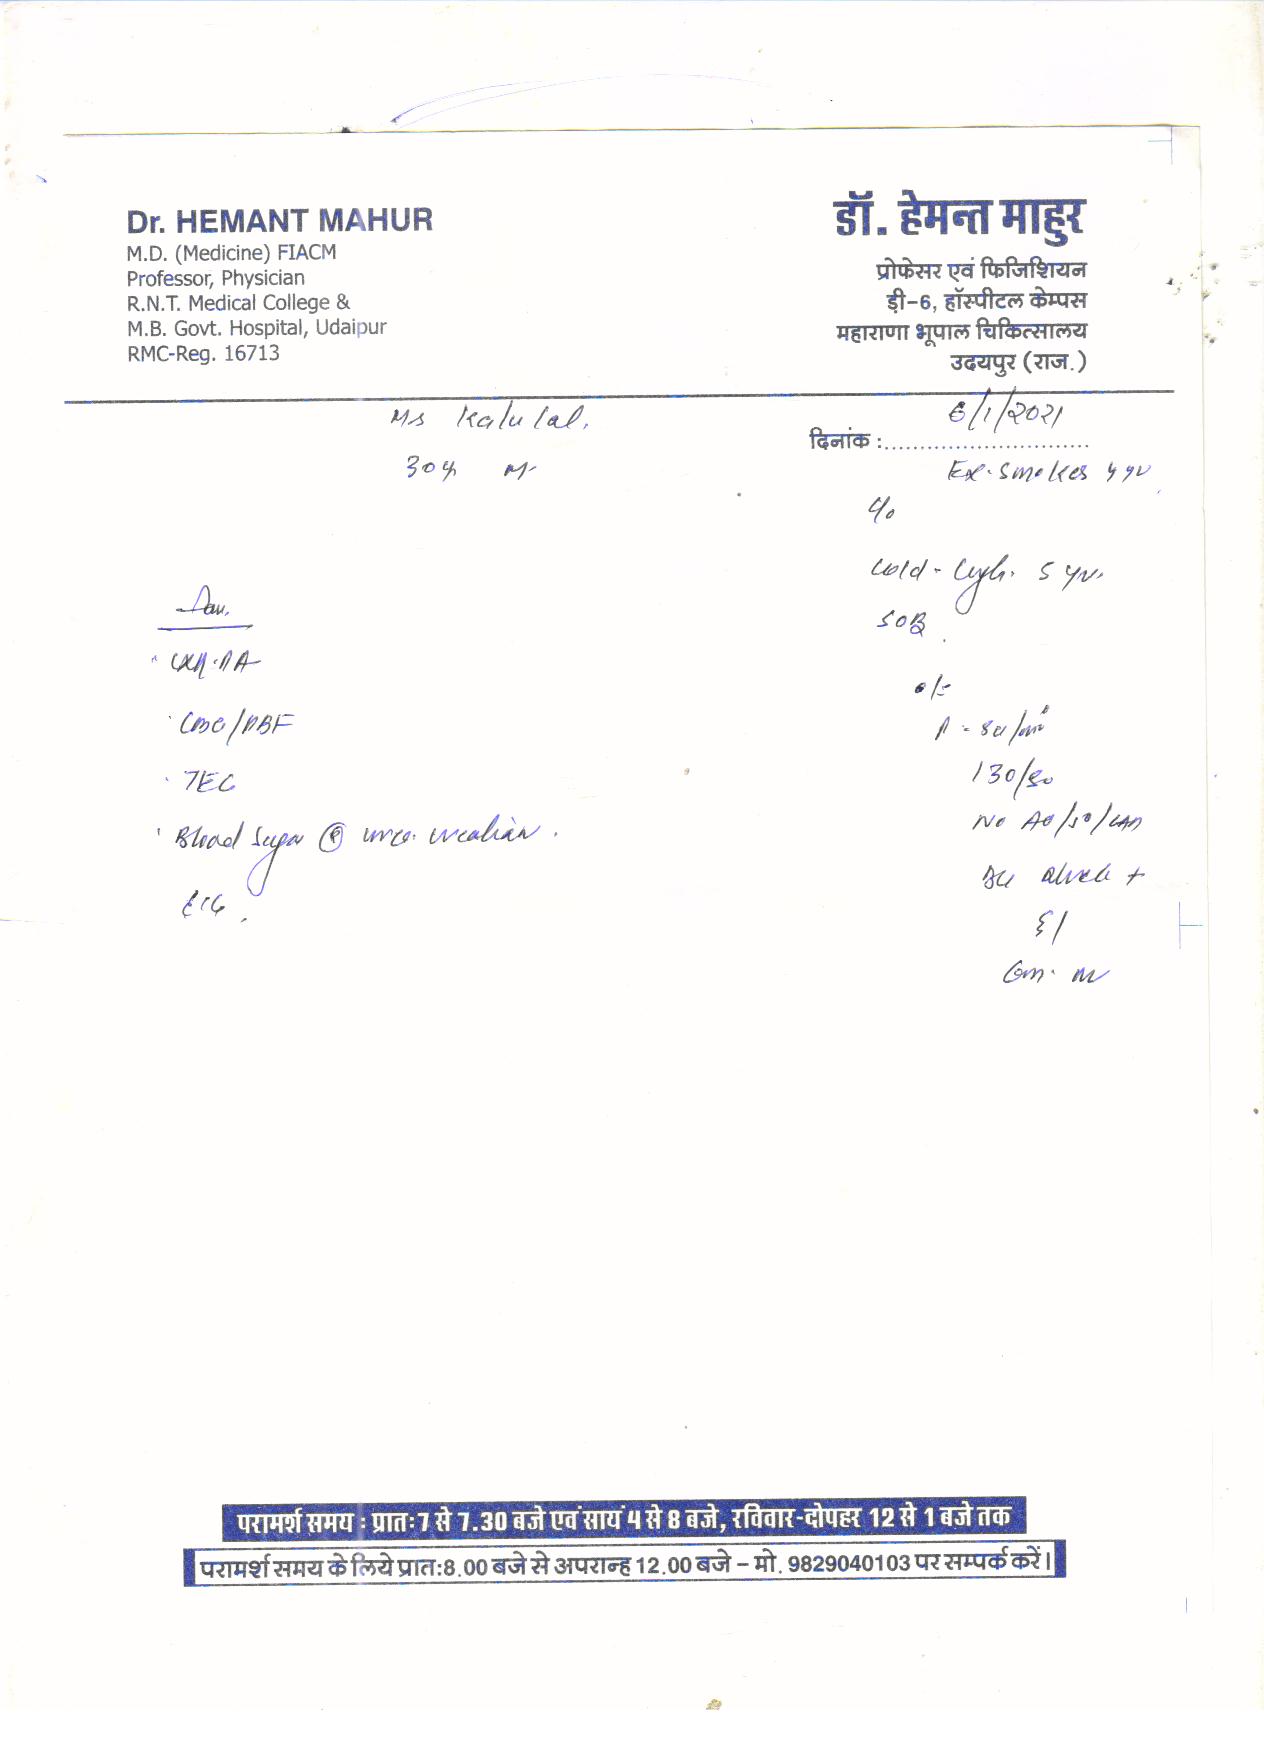 Dr. HEMANT MAHUR
M.D. (Medicine) FIACM
Professor, Physician
R.N.T. Medical College &
M.B. Govt. Hospital, Udaipur
RMC-Reg. 16713
डॉ. हेमन्त माहुर
प्रोफेसर एवं फिजिशियन
ड़ी-6, हॉस्पीटल केम्पस
महाराणा भूपाल चिकित्सालय
उदयपुर (राज.)
दिनांक : 6/1/2021
Ms Kalulal.
30y M
Ex. Smoker 4 yr
C/o
Cold - Cough. 5 yr.
SOB
O/E
P - 80/min
130/80
CXR-PA
CBC/PBF
TEC
Blood Sugar (R) urea creatinine.
ECG.
परामर्श समय : प्रातः 7 से 7.30 बजे एवं सायं 4 से 8 बजे, रविवार-दोपहर 12 से 1 बजे तक
परामर्श समय के लिये प्रात:8.00 बजे से अपरान्ह 12.00 बजे – मो. 9829040103 पर सम्पर्क करें।